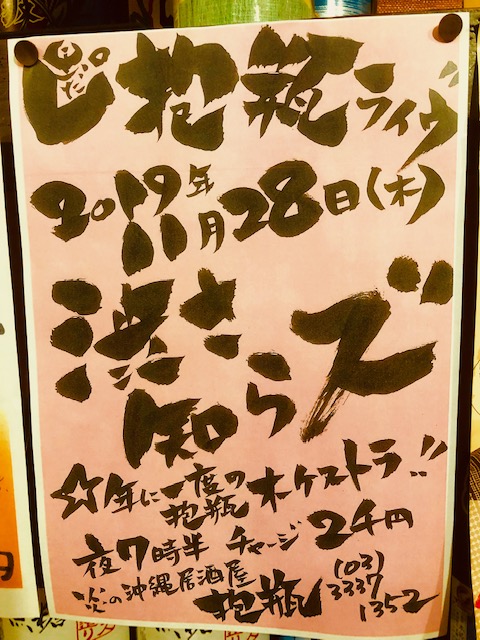 抱瓶ライヴ
2019年11月28日(木)
渋さ
知らズ
☆年に一度の抱瓶オケストラ!!
夜7時半 チャージ 2千円
炎の沖縄居酒屋 抱瓶 (03)
3337
1352